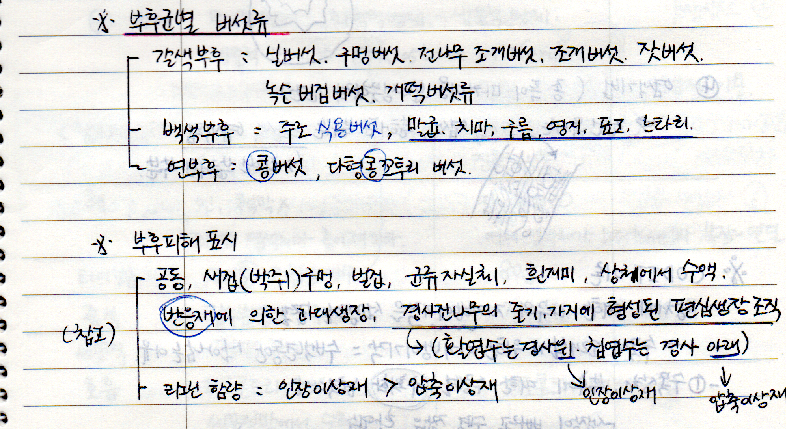 ※ 부후균별 버섯류
갈색부후 : 실버섯, 구멍버섯, 전나무 조개버섯, 조개버섯, 잣버섯,
녹슨버짐버섯, 개떡버섯류
백색부후 = 주로 식용버섯, 말굽, 치마, 구름, 영지, 표고, 느타리.
연부후 : 콩버섯, 다형콩꼬투리 버섯.
※ 부후피해 표시
공동, 새집(박쥐)구멍, 벌집, 균류자실체, 흰개미, 상처에서 수액,
(참고) 반응재에 의한 과대생장, 경사진나무의 줄기, 가지에 형성된 편심생장조직
→ (활엽수는 경사위, 침엽수는 경사 아래)
리그닌 함량 = 인장이상재 > 압축이상재 인장이상재 압축이상재